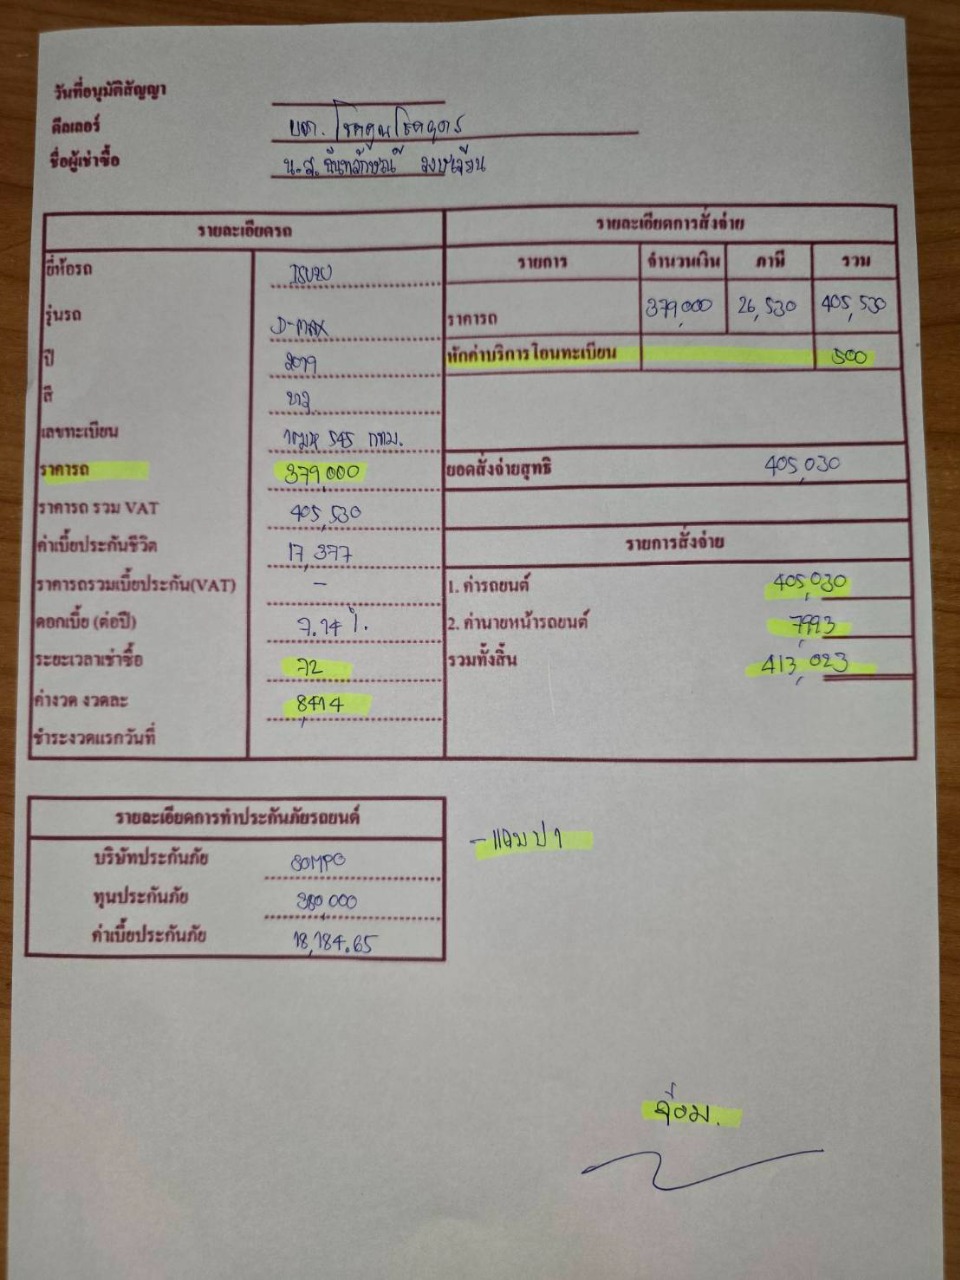 วันที่อนุมัติสัญญา
ดีลเลอร์ บจก. โชคคูณโชคถาวร
ชื่อผู้เช่าซื้อ น.ส.
รายละเอียดรถ
ยี่ห้อรถ ISUZU
รุ่นรถ D-MAX
ปี 2019
สี ขาว
เลขทะเบียน 545 กทม.
ราคารถ 379,000
ราคารถ รวม VAT 405,530
ค่าเบี้ยประกันชีวิต 17,377
ราคารถรวมเบี้ยประกัน(VAT) -
ดอกเบี้ย (ต่อปี) 7.74 %.
ระยะเวลาเช่าซื้อ 72
ค่างวด งวดละ 8,414
ชำระงวดแรกวันที่
รายละเอียดการสั่งจ่าย
รายการ จำนวนเงิน ภาษี รวม
ราคารถ 379,000 26,530 405,530
หักค่าบริการโอนทะเบียน 500
ยอดสั่งจ่ายสุทธิ 405,030
รายการสั่งจ่าย
1. ค่ารถยนต์ 405,030
2. ค่านายหน้ารถยนต์ 7,993
รวมทั้งสิ้น 413,023
รายละเอียดการทำประกันภัยรถยนต์
บริษัทประกันภัย SOMPO
ทุนประกันภัย 380,000
ค่าเบี้ยประกันภัย 18,184.65
- แถม ป1